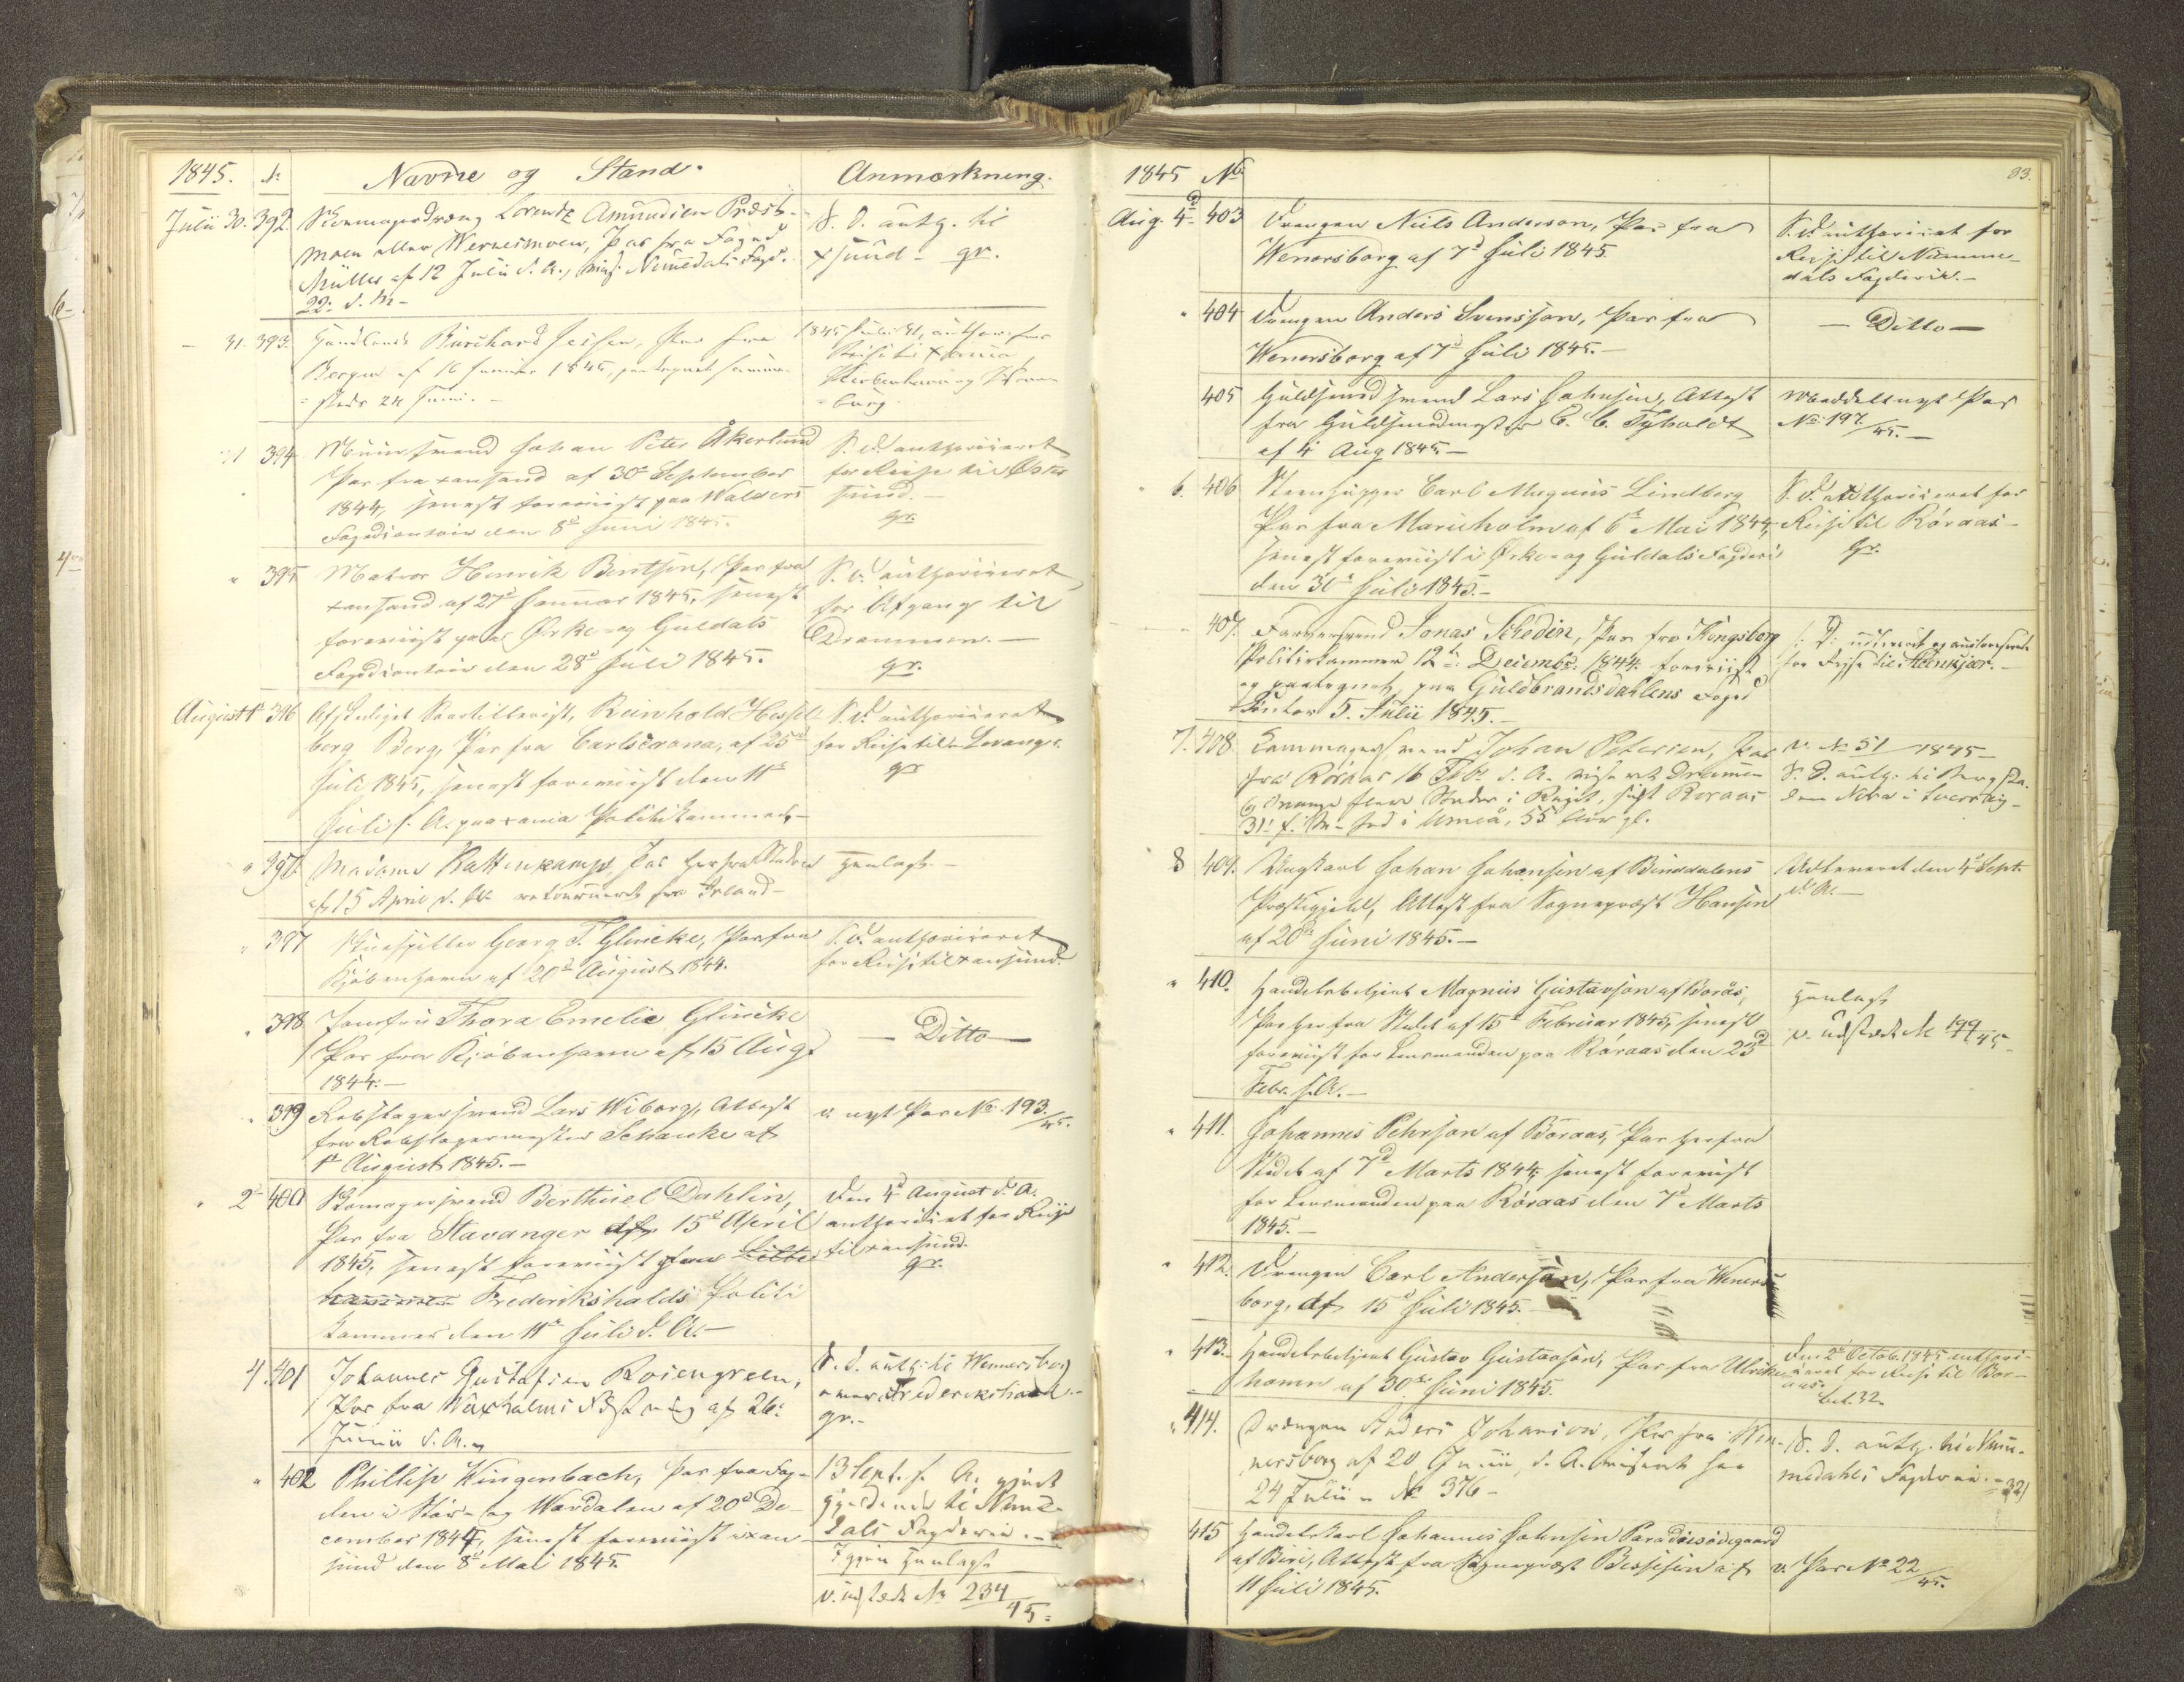 1845. No Navne og Stand. Anmærkning.
Julii 30. 392. Skomagerdreng Lorentz Amundsen Præst-
moen eller Wernesmoen, Pas fra Foged
Müller af 12 Julii d. A., Numedals Fogd.
22. d. M.
S. D. auth. til
Xsund. gr.
31. 393. Handlende Burchard Jessen, Pas fra
Bergen af 16 Januar 1845, paategnet samme-
steds 24 Juni.
1845 Juli 31, author. for
Reise til Xania
Kiøbenhavn og
borg.
31 394 Muursvend Johan Peter Åkerlund
Pas fra Xansand af 30d September
1844, senest foreviist paa Walders
Fogdicontoir den 8d Juni 1845.
S. D. authoriseret
for Reise til
sund.
gr.
" 395 Matros Henrik Bentsen, Pas fra
Xansand af 27d Januar 1845, senest
foreviist paa Ørke- og Guldals
Fogdicontoir den 28d Juli 1845.
S. D. authoriseret
for Afgang til
Drammen.
gr.
August 1t 396 Afskediget Reinhold Hessel-
berg Berg, Pas fra Carlscrona, af 25d
Juli 1845, senest foreviist den 11te
Juli s. A. paa Xania Politikammer.
S. D. authoriseret
for Reise til Levanger.
gr
" 397. Madame Kattenkamp, Pas her fra Staden
af 15 April d. A. retourneret fra Irland
Henlagt.
" 397 Skuespiller Georg F. Glincke, Pas fra
Kjøbenhavn af 20d August 1844.
S. D. authoriseret
for Reise til Xansund.
" 398 Jomfru Thora Emelie Glincke
Pas fra Kjøbenhavn af 15 Aug.
1844.
Ditto
" 399 Rebslagersvend Lars Wiborg, Attest
fra Rebslagermester Schancke af
1t August 1845.
v. nyt Pas No 193/45.
" 2d 400 Skomagersvend Berthuel Dahlin,
Pas fra Stavanger af 15d April
1845, senest foreviist
Frederikshalds Politi
kammer den 11te Juli d. A.
Den 4d August d. A.
authoriseret for Reise
til Xansund.
gr.
4. 401 Johannes Gustafsen Rosengreen,
Pas fra Waxholms Fæstning af 26.
Junii d. A.
S. D. auth. til Wenersborg
over Frederikshald.
gr.
" 402 Phillip Wingenbach, Pas fra Fog-
den i Stør- og Værdalen af 20d De-
cember 1844, senest foreviist i Xan-
sund den 8d Mai 1845.
13 Sept. s. A. gjort
gjeldende til Num-
dals Fogderie.
Igjen henlagt
v. udstedt No 234/45.
1845 No 83.
Aug. 4d 403 Drengen Niels Anderson, Pas fra
Wenersborg af 7d Juli 1845.
S. D. authoriseret for
Reise til Numme-
dals Fogderie.
" 404 Drengen Anders Svensson, Pas fra
Wenersborg af 7d Juli 1845.
Ditto
405 Guldsmedsvend Lars Johnsen, Attest
fra Guldsmedmester C. C. Tyholdt
af 4 Aug 1845.
meddelt nyt Pas
No 197/45.
" 6. 406 Steenhugger Carl Magnus Lindberg
Pas fra Marieholm af 6te Mai 1844,
senest foreviist i Ørke- og Guldals Fogderi
den 30d Juli 1845.
S. D. authoriseret for
Reise til Röraas
gr.
407. Farversvend Jonas Schedin, Pas fra Kongsberg
Politiekammer 12te Decembr. 1844. foreviist
og paategnet paa Guldbrandsdahlens Foged
Contor 5. Julii 1845.
S. D. authoriseret
for Reise til Steinkjær.
7. 408. Kammagersvend Johan Petersen, Pas
fra Röraas 16 Febr. d. A. viseret Drammen
og mange flere Steder i Riget, sidst Röraas
31. f. M. fød i Umeå, 55 Aar gl.
v. No 51 1845
S. D. auth. til
i Sverrig
8 409. Ungkarl Johan Johansen af Binddalens
Præstegjeld, Attest fra Sognepræst Hansen
af 20de Juni 1845.
Udleveret den 4d Sept.
d. A.
" 410. Handelsbetjent Magnus Gustavson af Borås,
Pas her fra Stedet af 15d Februar 1845, senest
foreviist for Lensmanden paa Röraas den 23d
Febr. s. A.
Henlagt
v. udstedt No 199/45
" 411. Johannes Pehrson af Böraas, Pas her fra
Stedet af 7d Marts 1844, senest foreviist
for Lensmanden paa Röraas den 7d Marts
1845.
" 412. Drengen Carl Anderson, Pas fra Weners-
borg, af 15d Juli 1845.
" 413. Handelsbetjent Gustav Gustavson, Pas fra Ulrice-
hamn af 30te Juni 1845.
den 2d Octob. 1845 authori-
seret for Reise til Bor-
aas.
bet. 32
" 414. Drengen Anders Johanson, Pas fra Wen-
nersborg af 20 Junii, d. A. viseret her
24 Julii No 376
S. D. auth. til Num-
medahls Fogderie. 32
415 Handelskarl Johannes Johnsen Paradiesødegaard
af Biri, Attest fra Sognepræst Bessesen af
11 Juli 1845.
v. Pas No 22/45.